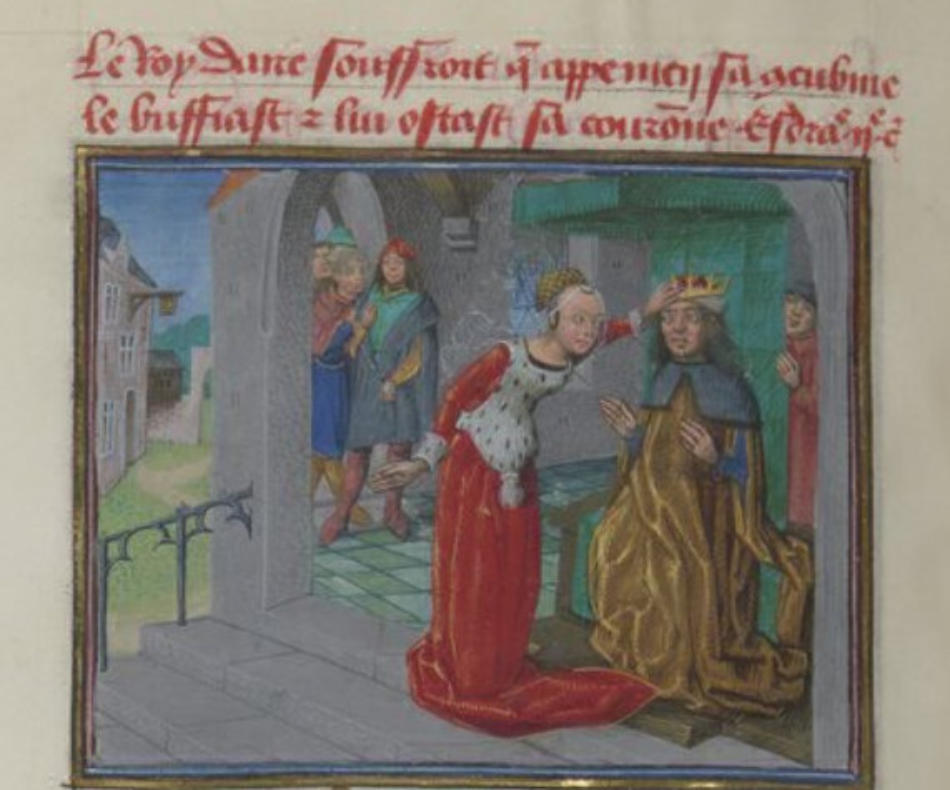 Le Roy Daire souffroit q̃ appemen sa gcubine
le buffiast ⁊ lui ostast sa courõne